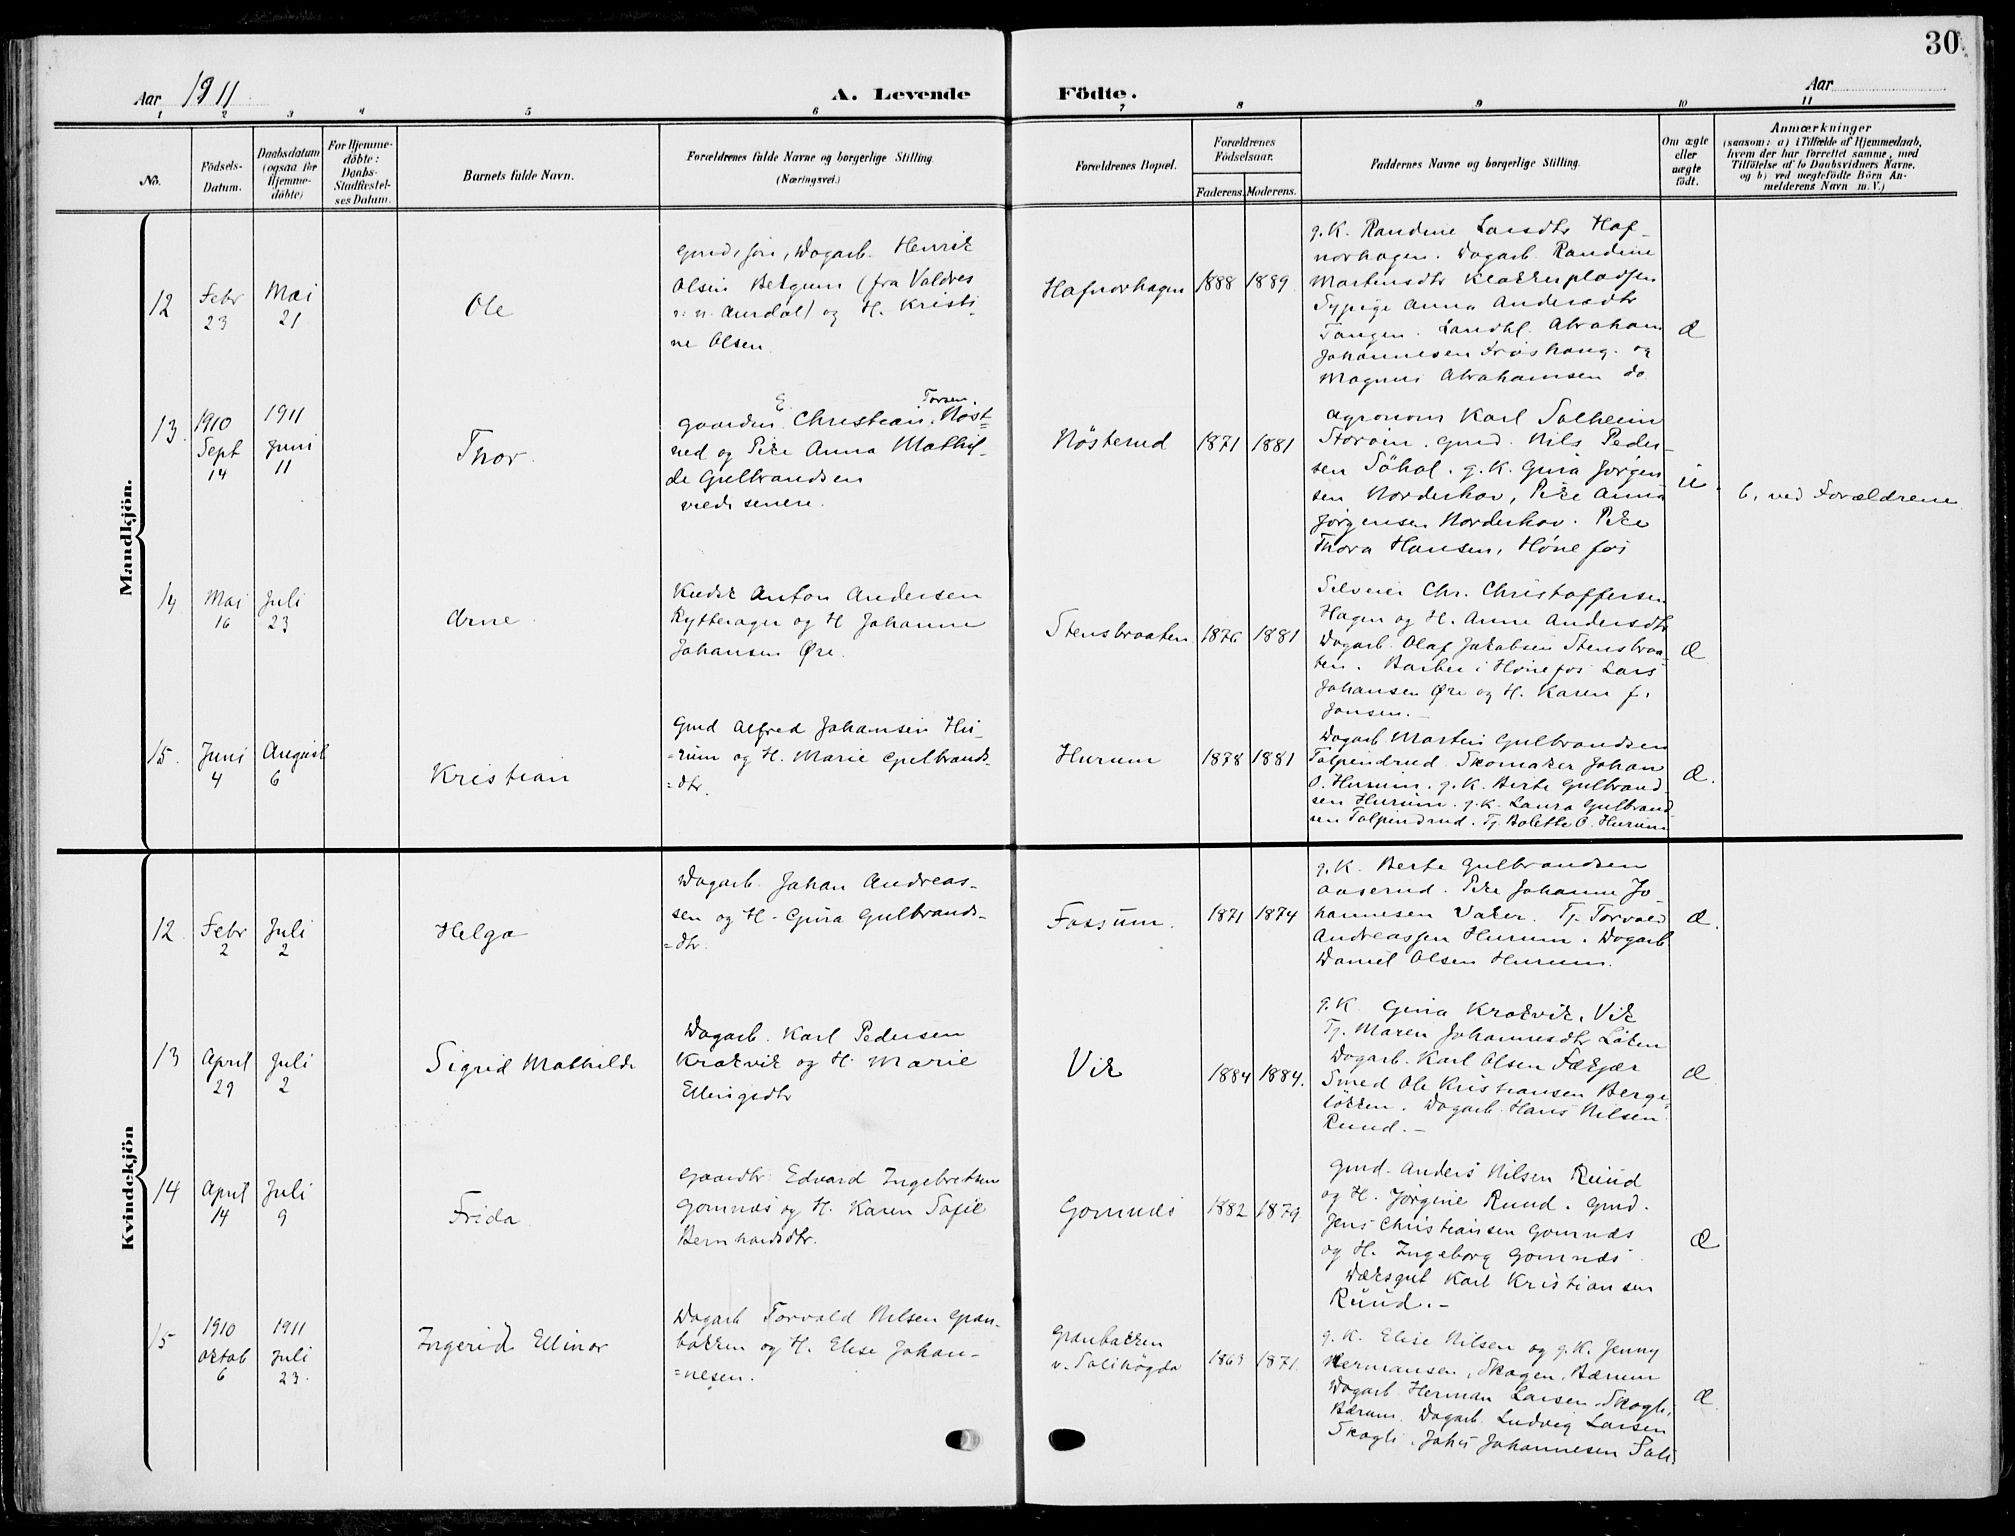 30
Aar 1911
A. Levende
Födte.
Aar
1 2 3 4 5 6 7 8 9 10 11
No.
Födsels-
Datum.
Daabsdatum
(ogsaa for
Hjemme-
döbte)
For Hjemme-
döbte:
Daabs-
Stadfæstel-
ses Datum.
Barnets fulde Navn.
Forældrenes fulde Navne og borgerlige Stilling.
(Næringsvei.)
Forældrenes Bopæl.
Forældrenes
Födselsaar.
Faderens. Moderens.
Faddernes Navne og borgerlige Stilling.
Om ægte
eller
uægte
födt.
Anmærkninger
(saasom: a) i Tilfælde af Hjemmedaab,
hvem der har forrettet samme, med
Tilföielse af to Daabsvidners Navne.
og b) ved uægtefödte Börn An-
melderens Navn m. V.)
Mandkjön.
12
Febr
23
Mai
21
Ole
Dagarb. Henrik
Olsen Bergum (fra Valdres
Aurdal) og H. Kristi
ne Olsen
Hafnorhagen
1888
1889
g. K. Randine Larsdtr Haf-
norhagen. Dagarb. Randine
Martensdtr Klakkenpladsen
Sypige Anna Andersdtr
Tangen. Landhl. Abraham
Johannesen Frøshaug. og
Magnus Abrahamsen do
Æ
13.
1910
Sept
14
1911
Juni
11
Thor.
Torsen.
Gaardm. Christian Nöst
rud og Pike Anna Mathil-
de Gulbrandsen
viede senere.
Nösterud
1871
1881
Agronom Karl Solheim
Storöen. Gmd. Nils Peder-
sen Söhol. g. K. Gina Jørgen-
sen Norderhov, Pike Anna
Jørgensen Norderhov. Pike
Thora Hansen, Hønefos
u
b, ved Forældrene
14
Mai
16
Juli
23
Arne
Kudsk Anton Andersen
Rytterager og H Johanne
Johansen Øre.
Stensbraaten
1876
1881
Chr. Christoffersen
Hagen og H. Anne Andersdtr
Dagarb. Olaf Jakobsen Stensbraa-
ten. Barber i Hönefos Lars
Johansen Øre og H. Karen f.
Jansen.—
Æ
15.
Juni
4
August
6
Kristian
Gmd Alfred Johansen Hu-
=rum og H. Marie Gulbrands-
=dtr.
Hurum
1878
1881
Dagarb Martin Gulbrandsen
Tolpendrud. Skomaker Johan
O. Hurum. g. K. Berte Gulbrand-
sen Hurum. g. K. Laura Gulbrand
sen Tolpendrud. Tj. Bolette O. Hurum
Æ.
Kvindekjön
12
Febr
2
Juli
2
Helga
Dagarb. Johan Andreas-
sen og H. Gina Gulbrands-
=dtr.
Fossum.
1871
1874
g. K. Berte Gulbrandsen
Aaserud. Pike Johanne Jo-
hannesen Vaker. Tj. Torvald
Andreassen Hurum. Dagarb.
Daniel Olsen Hurum.
Æ.
13
April
29
Juli
2
Sigrid Mathilde
Dagarb. Karl Pedersen
Krakvik og H. Marie
Ellingsdtr
Vik
1884
1884.
g. K. Gina Krakvik, Vik
Tj. Maren Johannesdtr Löken
Dagarb. Karl Olsen Fækjær
Smed Ole Kristiansen Berge-
lökken. Dagarb. Hans Nilsen
Rund.—
Æ
14
April
14
Juli
9
Frida
Gaardbr. Edvard Ingebretsen
Gomnæs og H. Karen Sofie
Bernhardsdtr.
Gomnæs
1882
1879
Gmd. Anders Nilsen Ruud
og H. Jørgine Ruud. Gmd.
Jens Christiansen Gomnæs
og H. Ingeborg Gomnæs
Karl Kristiansen
Ruud.—
Æ
15
1910
Oktob
6
1911
Juli
23.
Ingerid Ellinor
Dagarb Torvald Nilsen Gran-
bakken og H. Elise Johan-
=nesen.
Granbakken
v. Sollihögda
1863
1871.
g. K. Elise Nilsen og g. K. Jenny
Hermansen, Skogen, Bærum
Dagarb Herman Larsen, Skogli,
Bærum. Dagarb. Ludvig Larsen
Skogli. Johs Johannesen Soli
Æ.